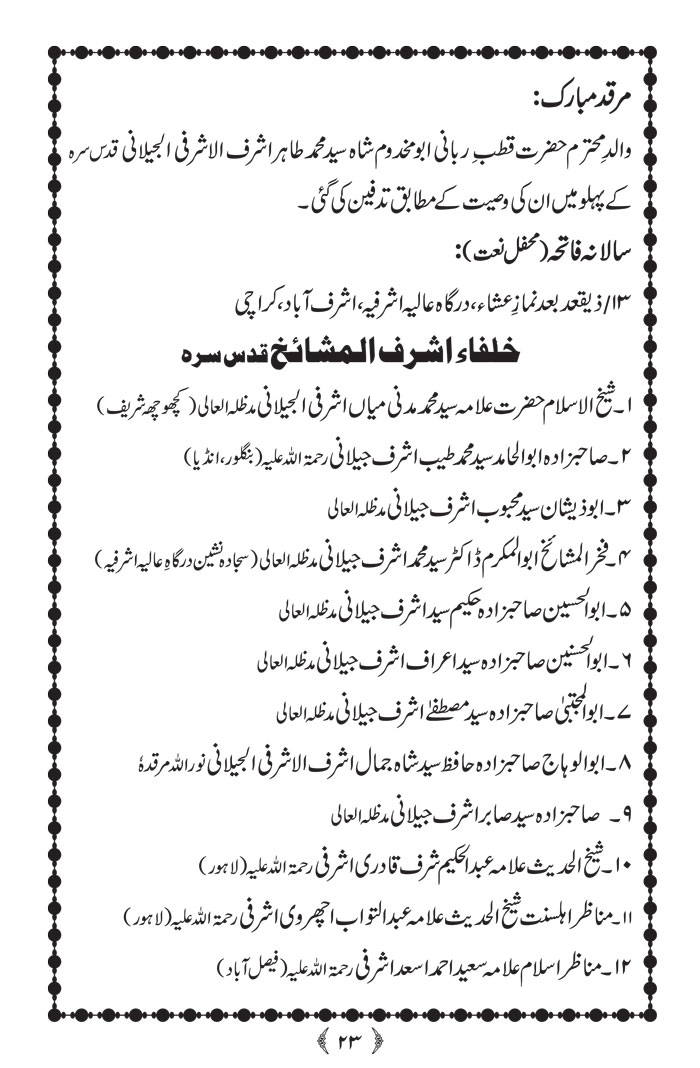 مرقد مبارک:
والدِ محترم حضرت قطبِ ربانی ابو مخدوم شاہ سید محمد طاہر اشرف الاشرفی الجیلانی قدس سرہ
کے پہلو میں ان کی وصیت کے مطابق تدفین کی گئی۔
سالانہ فاتحہ (محفل نعت):
۱۳/ذیقعد بعد نمازِ عشاء، درگاہ عالیہ اشرفیہ، اشرف آباد، کراچی
خلفاء اشرف المشائخ قدس سرہ
۱۔شیخ الاسلام حضرت علامہ سید محمد مدنی میاں اشرفی الجیلانی مدظلہ العالی ( کچھوچھہ شریف )
۲۔صاحبزادہ ابوالحامد سید محمد طیب اشرف جیلانی رحمۃ اللہ علیہ (بنگلور، انڈیا)
۳۔ابوذیشان سید محبوب اشرف جیلانی مدظلہ العالی
۴۔فخر المشائخ ابوالمکرم ڈاکٹر سید محمد اشرف جیلانی مدظلہ العالی (سجادہ نشین درگاہِ عالیہ اشرفیہ )
۵۔ابوالحسین صاحبزادہ حکیم سید اشرف جیلانی مدظلہ العالی
۶۔ابوالحسنین صاحبزادہ سید اعراف اشرف جیلانی مدظلہ العالی
۷۔ابوالمجتبیٰ صاحبزادہ سید مصطفےٰ اشرف جیلانی مدظلہ العالی
۸۔ابوالوہاج صاحبزادہ حافظ سید شاہ جمال اشرف الاشرفی الجیلانی نور اللہ مرقدہٗ
۹۔ صاحبزادہ سید صابر اشرف جیلانی مدظلہ العالی
۱۰۔شیخ الحدیث علامہ عبدالحکیم شرف قادری اشرفی رحمۃ اللہ علیہ (لاہور)
۱۱۔مناظر اہلسنت شیخ الحدیث علامہ عبدالتواب اچھروی اشرفی رحمۃ اللہ علیہ (لاہور)
۱۲۔مناظر اسلام علامہ سعید احمد اسعد اشرفی رحمۃ اللہ علیہ (فیصل آباد)
﴿۲۳﴾